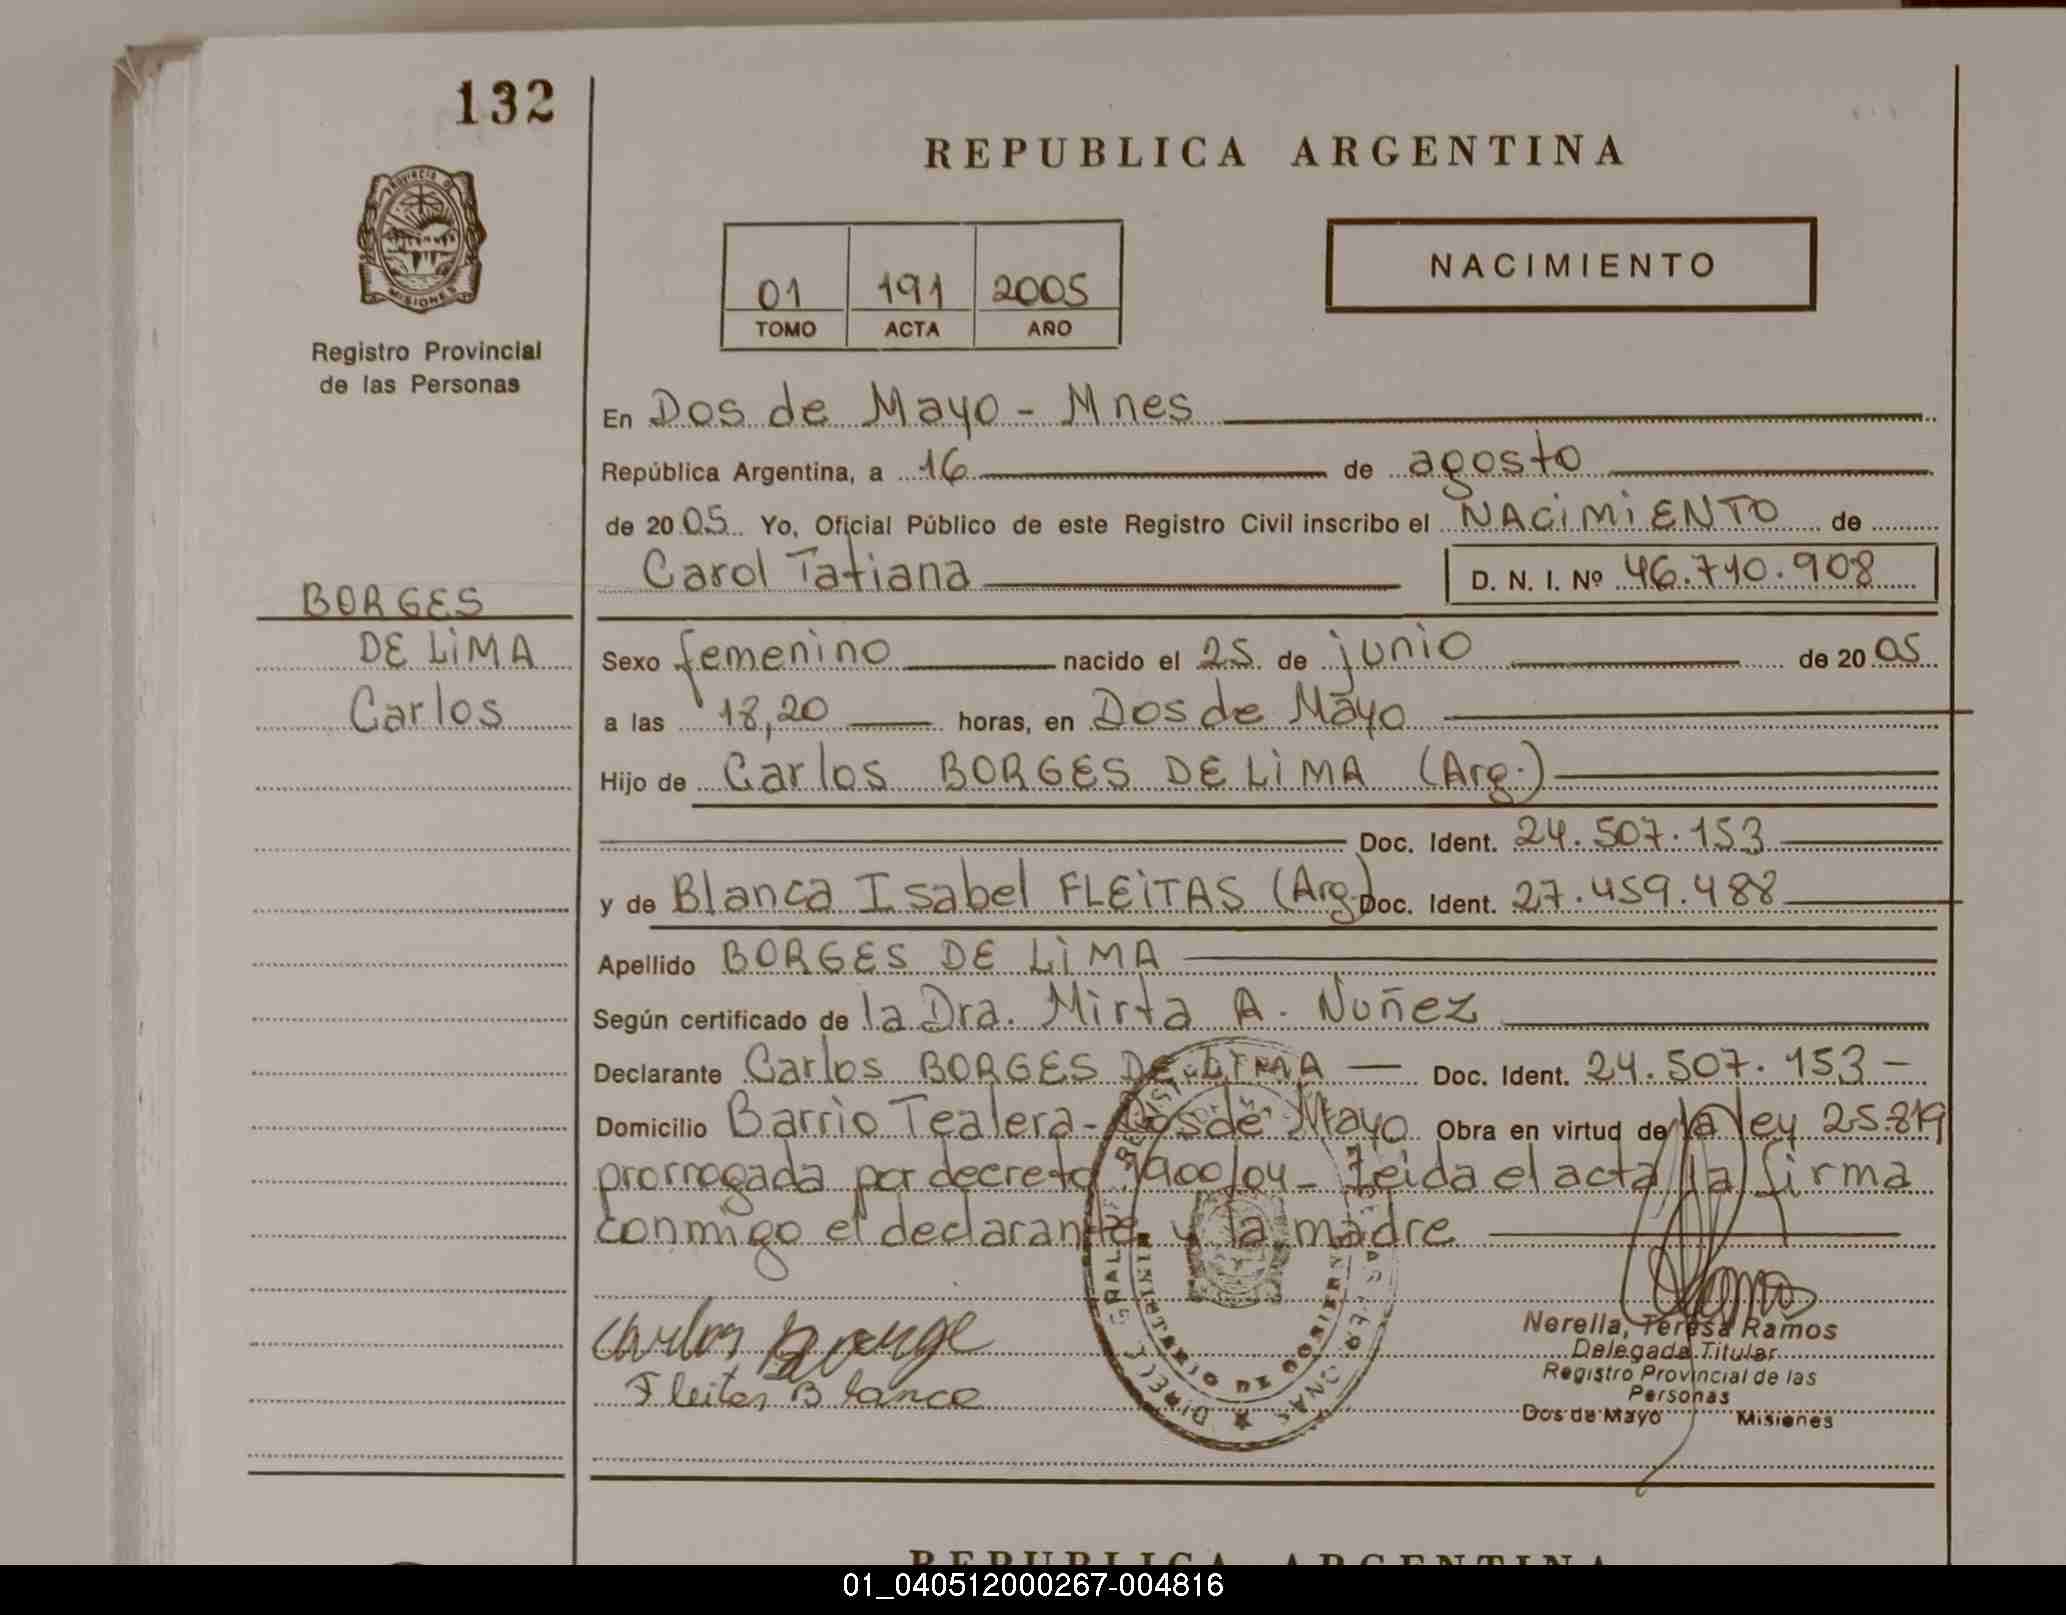 132
REPUBLICA ARGENTINA
PROVINCIA D
MISIONES
Registro Provincial
de las Personas
01 191 2005
TOMO ACTA AÑO
NACIMIENTO
En Dos de Mayo - Mnes
República Argentina, a 16 de agosto
de 2005 Yo, Oficial Público de este Registro Civil inscribo el NACIMIENTO de
Carol Tatiana D. N. I. Nº 46.710.908
BORGES
DE LIMA
Carlos
Sexo femenino nacido el 25 de junio de 2005
a las 18,20 horas, en Dos de Mayo
Hijo de Carlos BORGES DE LIMA (Arg.)
Doc. Ident. 24.507.153
y de Blanca Isabel FLEITAS (Arg.) Doc. Ident. 27.459.488
Apellido BORGES DE LIMA
Según certificado de la Dra. Mirta A. Nuñez
Declarante Carlos BORGES DE LIMA — Doc. Ident. 24.507.153 -
Domicilio Barrio Tealera - Dos de Mayo Obra en virtud de la ley 25.819
prorrogada por decreto 1900/04 - Leida el acta la firma
conmigo el declarante y la madre
Fleitas Blanca
Nerella, Teresa Ramos
Delegada Titular
Registro Provincial de las
Personas
Dos de Mayo Misiones
REPUBLICA ARGENTINA
01_040512000267-004816